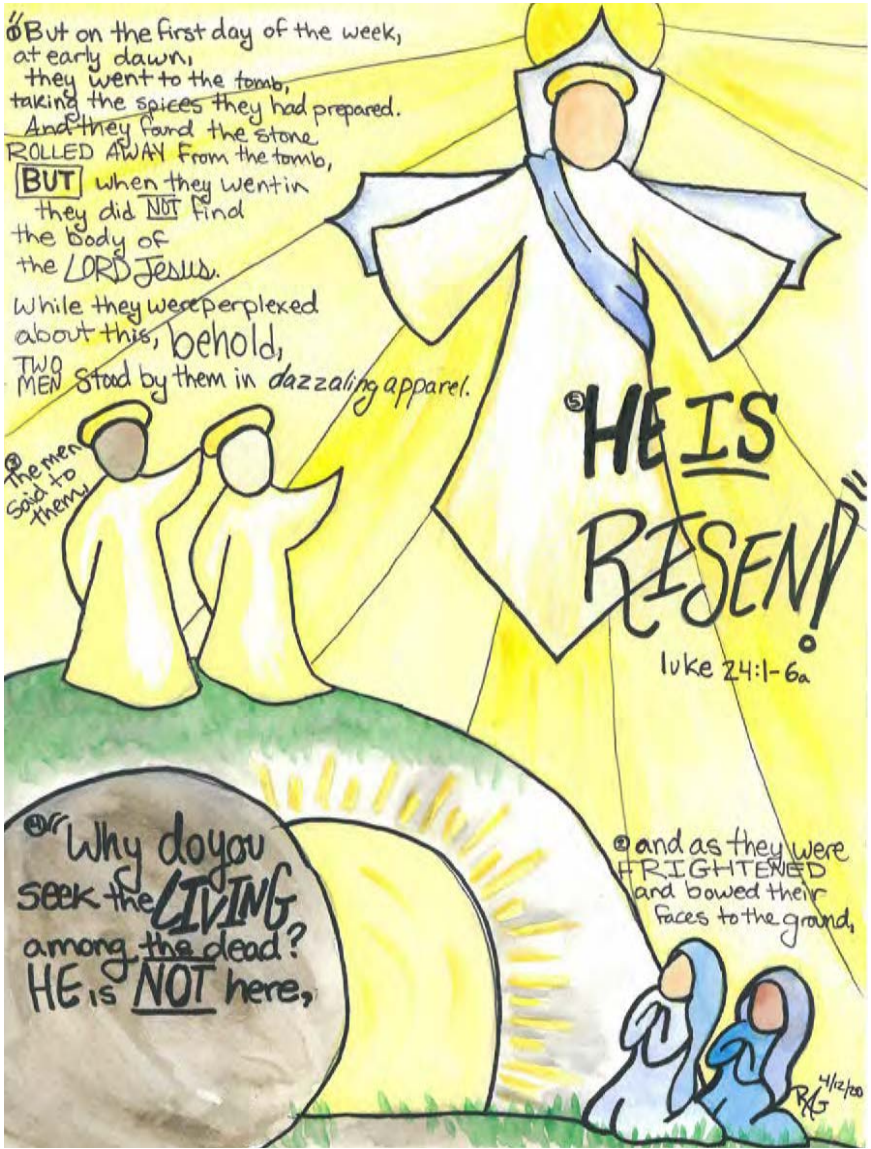 "① But on the first day of the week,
at early dawn,
they went to the tomb,
taking the spices they had prepared.
And they found the stone
ROLLED AWAY from the tomb,
BUT when they went in
they did NOT find
the body of
the LORD Jesus.
While they were perplexed
about this, behold,
TWO
MEN stood by them in dazzaling apparel.
② and as they were
FRIGHTENED
and bowed their
faces to the ground,
③ The men
said to
them,
④ "Why do you
seek the LIVING
among the dead?
HE is NOT here,
⑤ HE IS
RISEN!"
luke 24:1-6a
RAG 4/12/20